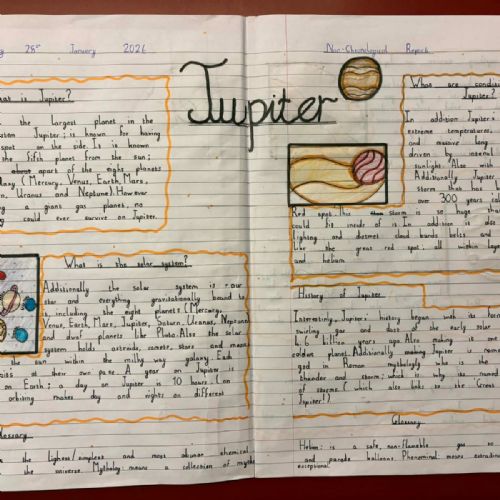 28th January 2026
Non-Chronological Report
Jupiter
What is Jupiter?
the largest planet in the
system Jupiter; is known for having
spot on the side. It is known
the fifth planet from the sun;
apart of the eight planets
(Mercury, Venus, Earth, Mars,
n, Uranus and Neptune). However
giant gas planet, no
could ever survive on Jupiter.
What is the solar system?
Additionally the solar system is our
star and everything gravitationally bound to
is, including the eight planets (Mercury,
Venus, Earth, Mars, Jupiter, Saturn, Uranus, Neptune
and dwarf planets like Pluto. Also the solar
system holds astroids, comets, stars and moons
the within the milky way galaxy. Each
at their own pace. A year on Jupiter is
on Earth; a day on Jupiter is 10 hours. (on
orbiting makes day and nights on different
Glossary
the lighess/simpless and most abunar chemical
the universe. Mythology: means a collection of myths
What are
Jupiter?
In addition Jupiter
extreme temperatures,
and massive long
driven by internal
sunlight. Also with
Additionally Jupiter
storm that has
over 300 years
Red spot. This storm is so huge
could fit inside of it. In addition is also
lighting and distmet cloud bands belts and
like the great red spot; all within
and helium.
History of Jupiter
Interestinly, Jupiter; history began with its
swirling gas and dust of the early solar
4.6 billion years ago. Also making is one
coldest planet. Additionally making Jupiter is
god in Roman mythology is the
thunder and storm; which is why its named
of storms. (which also links to the Great
Jupiter!)
Glossary
Helium: is a safe, non-flamable gas so
and parade balloons. Phenominal: means
exceptional.